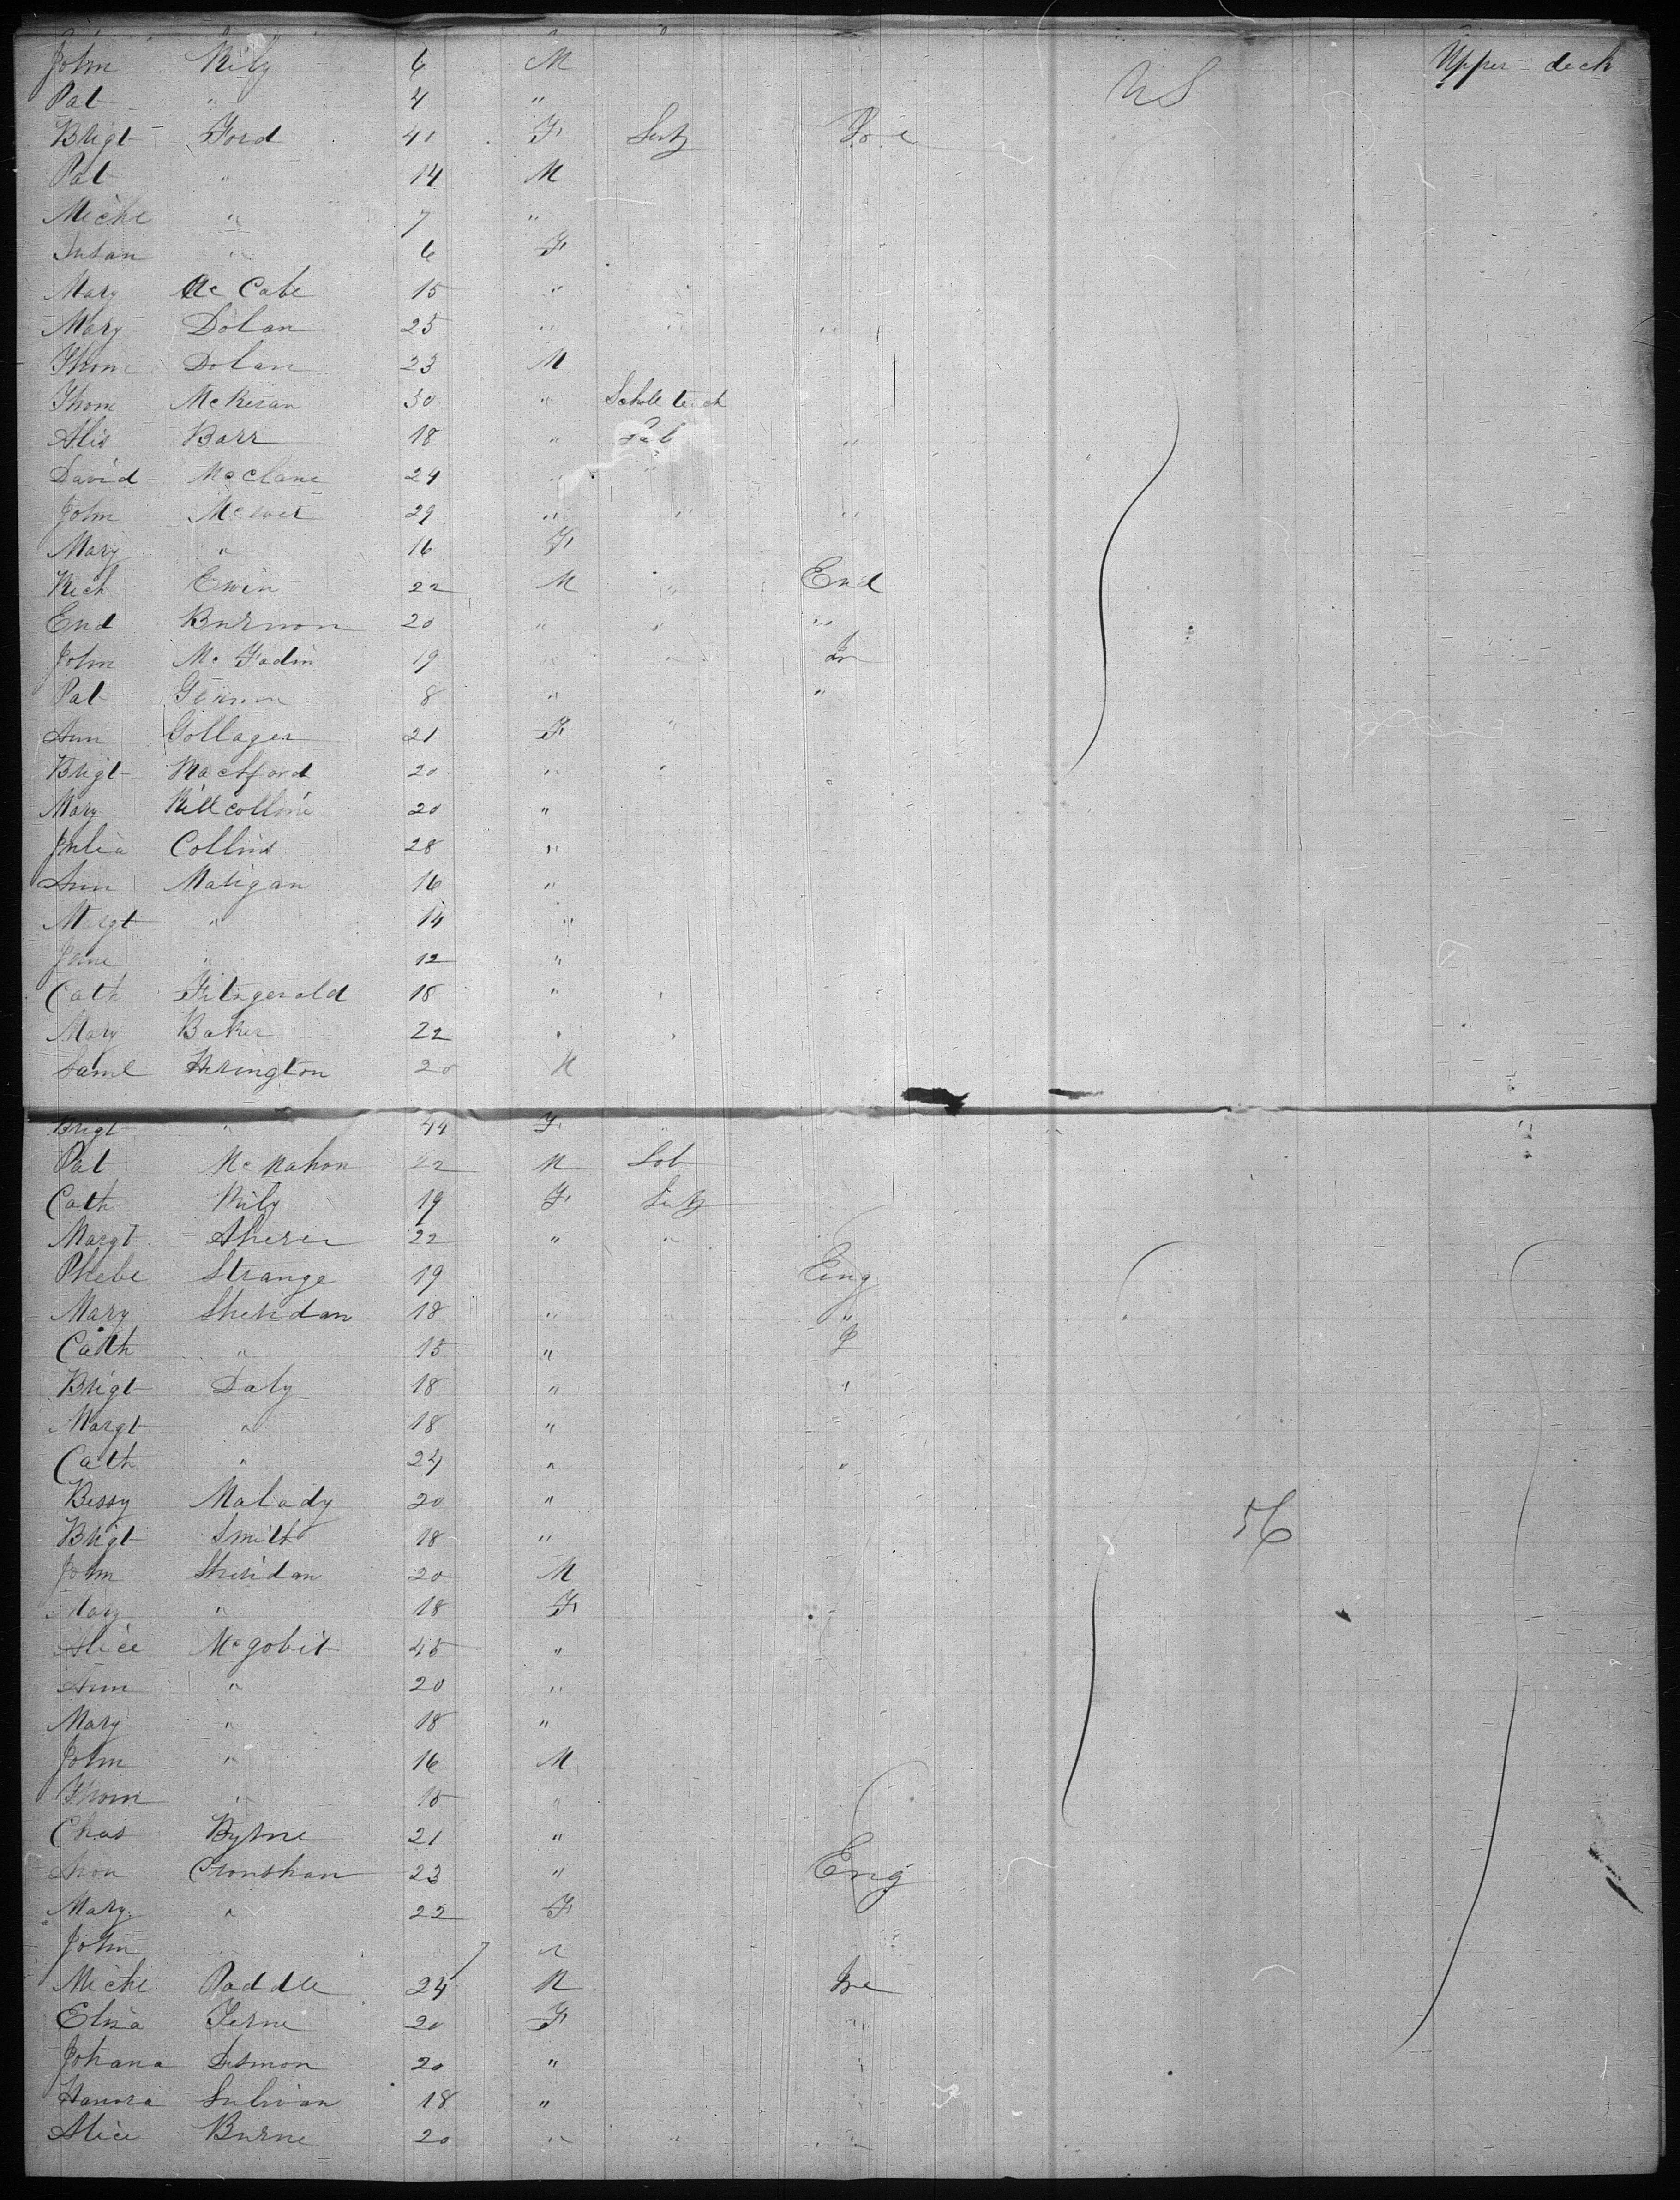 John Rily 6 M US Upper deck
Pat " 4 "
Brigt Ford 41 F Ire
Pat " 14 M
Miche " 7 "
Susan " 6 F
Mary Mc Cabe 15 "
Mary Dolan 25 " " "
Thom Dolan 23 M
Thom McKeran 30 "
Alis Barr 18 " Lab "
David McClane 24 " "
John 29 " " "
Mary " 16 F
Rich Ewin 22 M " End
End Burnon 20 " " "
John Mc Fadin 19 " " Ire
Pat 8 " "
Ann Gollager 21 F "
Brigt Rachford 20 "
Mary Killcolline 20 "
Julia Collins 28 "
Ann Maligan 16 "
Margt " 14 "
Jane " 12 "
Cath Fitzgerald 18 "
Mary Baker 22 "
Saml Herington 20 M
Brigt " 44 F "
Pat McMahon 22 M Lab
Cath Rily 19 F
Margt 22 " "
Phebe Strange 19 Eng
Mary Sheridan 18 " " "
Cath " 15 "
Brigt Daly 18 " "
Margt " 18 "
Cath " 24 " "
Bessy Malady 20 "
Brigt Smith 18 " 56
John Sheridan 20 M
Mary " 18 F
Alice Mcgobit 45 "
Ann " 20 "
Mary " 18 "
John " 16 M
Thom " 15 "
Chas Byrne 21 "
Cronshan 23 " Eng
Mary " 22 F
John "
Miche Paddle 24 M Ire
Eliza Ferne 20 F "
Johana Desmon 20 "
Hanora Sulivan 18 "
Alice Burne 20 " " "